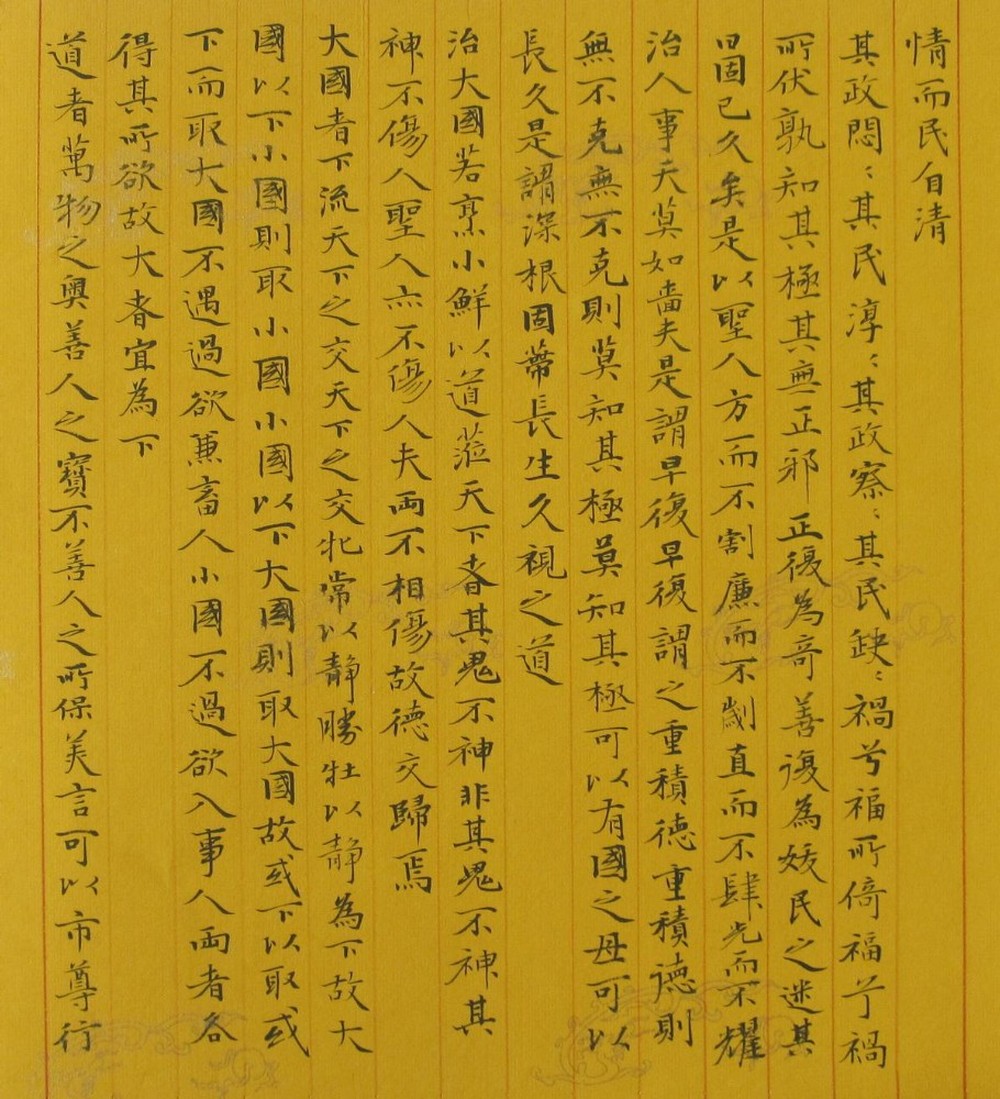 情而民自清
其政悶〻其民淳〻其政察〻其民缺〻禍兮福所倚福兮禍
所伏孰知其極其無正邪正復為奇善復為妖民之迷其
日固已久矣是以聖人方而不割廉而不劌直而不肆光而不耀
治人事天莫如嗇夫是謂早復早復謂之重積德重積德則
無不克無不克則莫知其極莫知其極可以有國之母可以
長久是謂深根固蒂長生久視之道
治大國若烹小鮮以道蒞天下者其鬼不神非其鬼不神其
神不傷人聖人亦不傷人夫両不相傷故德交歸焉
大國者下流天下之交天下之交牝常以靜勝牡以靜為下故大
國以下小國則取小國小國以下大國則取大國故或下以取或
下而取大國不遇過欲兼畜人小國不過欲入事人両者各
得其所欲故大者宜為下
道者萬物之奧善人之寶不善人之所保美言可以市尊行